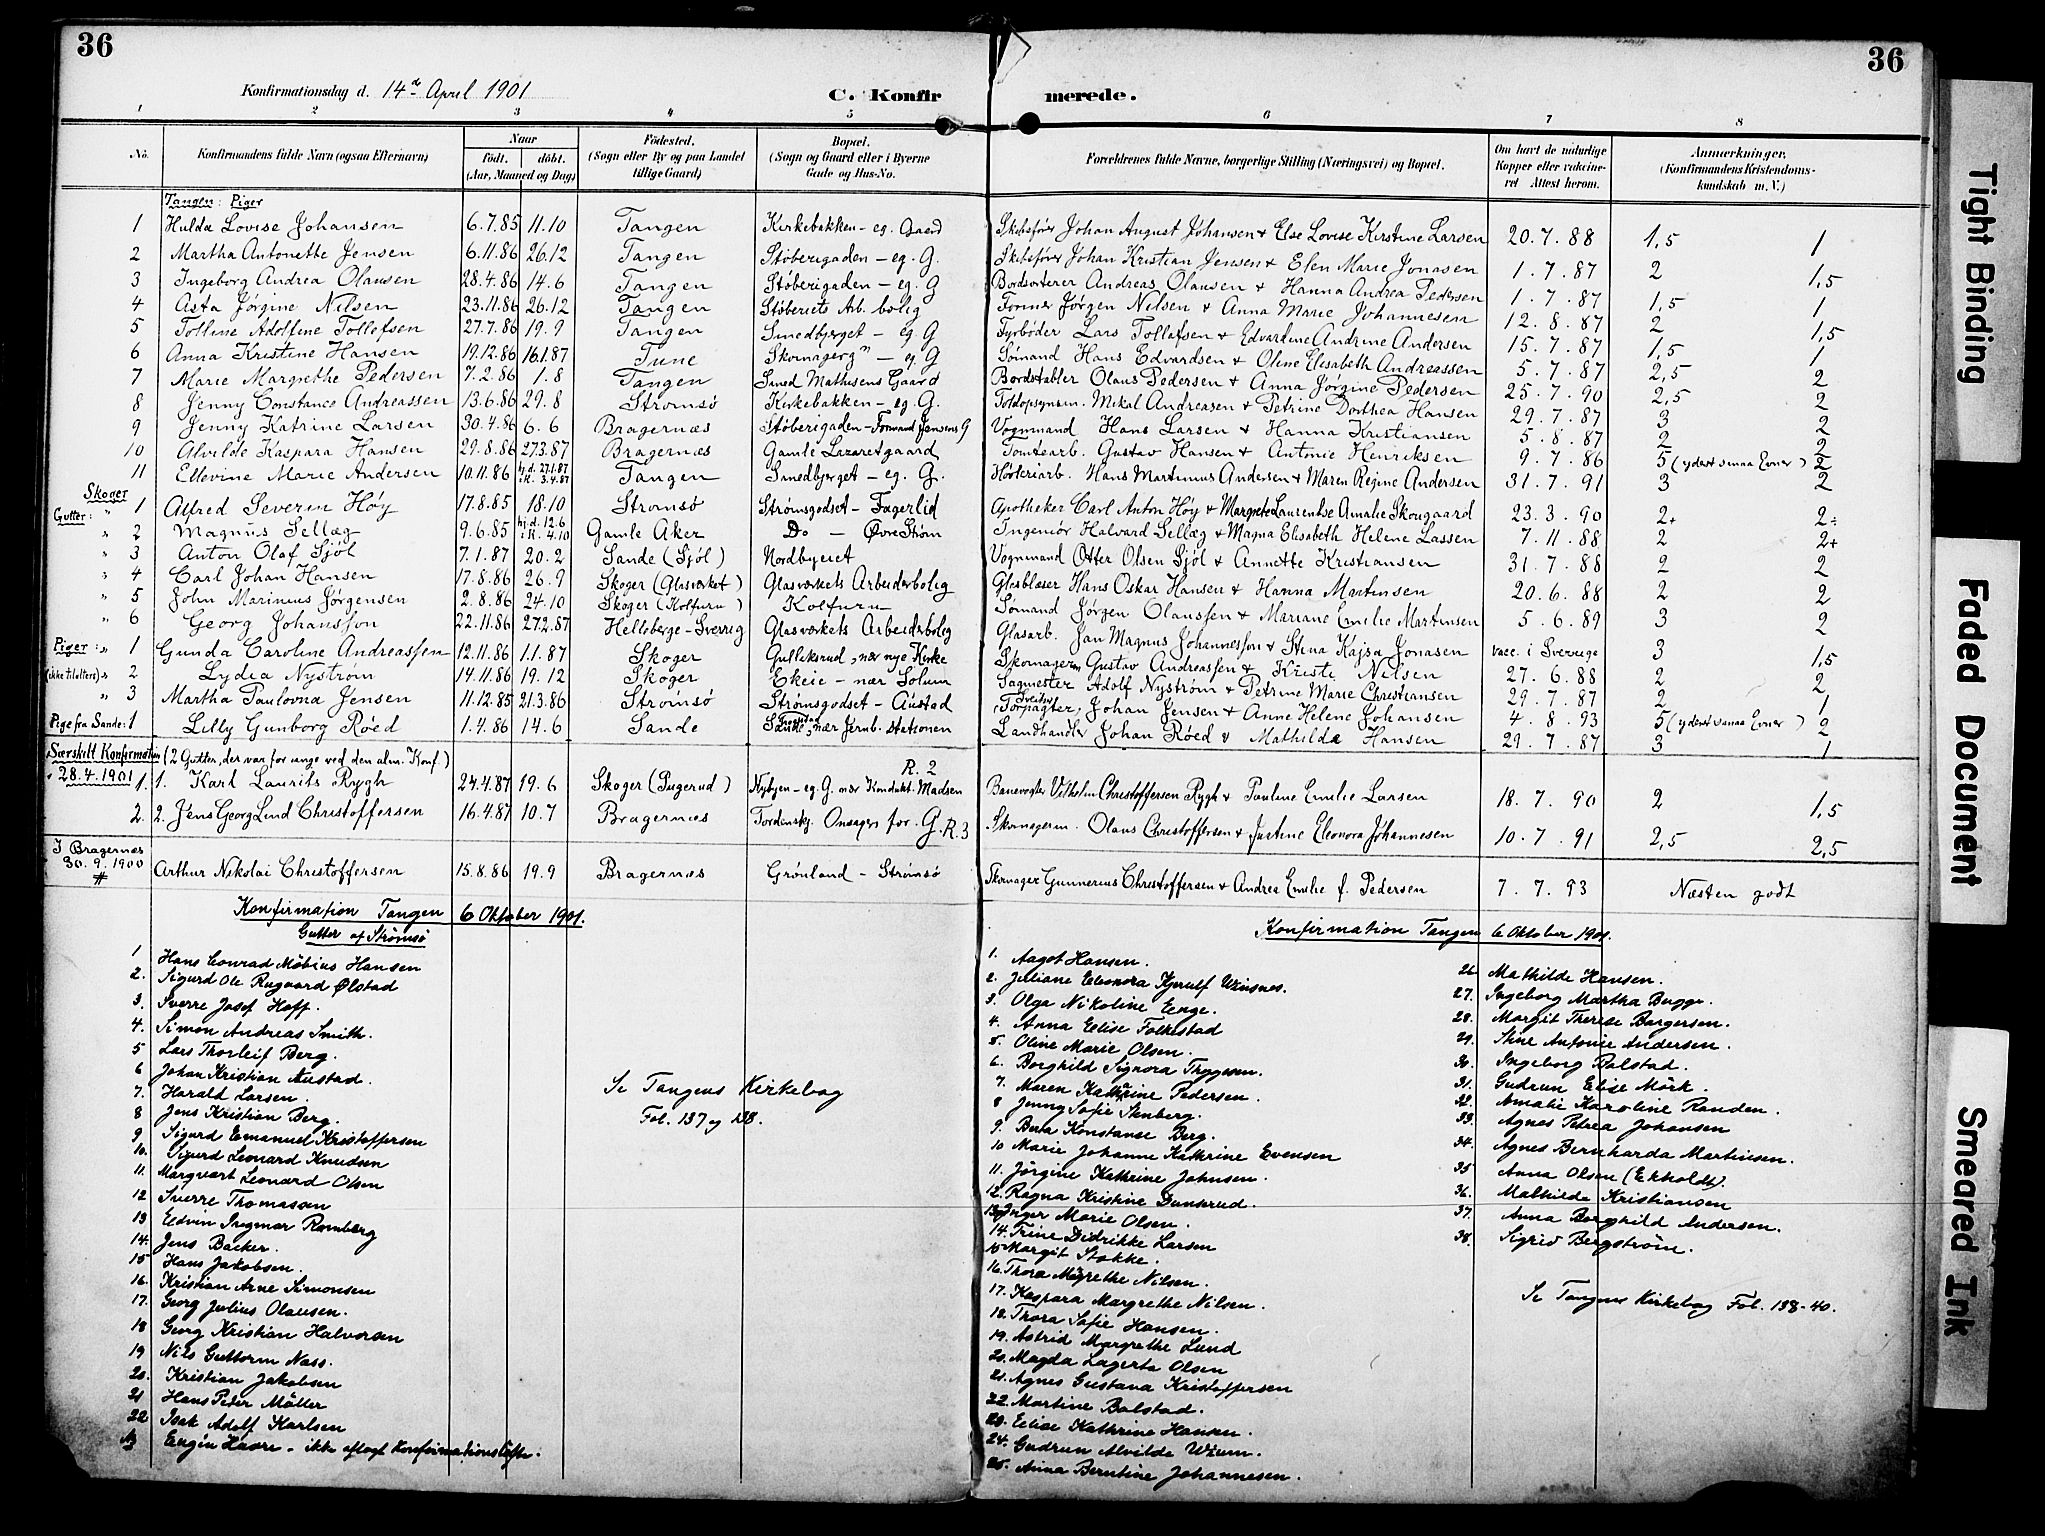 36
36
Konfirmationsdag d. 14de April 1901
C. Konfirmerede.
1 2 3 4 5 6 7 8
No. Konfirmandens fulde Navn (ogsaa Efternavn) Naar födt. döbt. (Aar, Maaned og Dag) Födested. (Sogn eller By og paa Landet tillige Gaard) Bopæl. (Sogn og Gaard eller i Byerne Gade og Hus-No. Forældrenes fulde Navne, borgerlige Stilling (Næringsvei) og Bopæl. Om havt de naturlige Kopper eller vakcineret Attest herom. Anmærkninger, (Konfirmandens Kristendomskundskab m. V.)
Tangen: Piger
1 Hulda Lovise Johansen 6.7.85 11.10 Tangen Kirkebakken - eg. Gaard Skibsfør. Johan August Johansen + Else Lovise Kirstine Larsen 20.7.88 1,5 1
2 Martha Antonette Jensen 6.11.86 26.12 Tangen Støberigaden - eg. G. Skibsfør Johan Kristian Jensen + Elen Marie Jonasen 1.7.87 2 1,5
3 Ingeborg Andrea Olausen 28.4.86 14.6 Tangen Støberigaden - eg. G Bordsorterer Andreas Olausen + Hanna Andrea Pedersen 1.7.87 1,5 1
4 Asta Jørgine Nilsen 23.11.86 26.12 Tangen Støberiets Arb. bolig Former Jørgen Nilsen + Anna Marie Johannesen 12.8.87 2 1,5
5 Tolline Adolfine Tollefsen 27.7.86 19.9 Tangen Smedbjerget - eg G Fyrbøder Lars Tollefsen + Edvardine Andrine Andersen 15.7.87 1,5 1
6 Anna Kristine Hansen 19.12.86 16.1.87 Tune Skomagerg - eg G Sømand Hans Edvardsen + Oline Elisabeth Andreassen 5.7.87 2,5 2
7 Marie Margrethe Pedersen 7.2.86 1.8 Tangen Smed Mathisens Gaard Bordstabler Olaus Pedersen + Anna Jørgine Pedersen 25.7.90 2,5 2
8 Jenny Constance Andreassen 13.6.86 29.8 Strømsø Kirkebakken - eg. G. Toldopsynsm. Mikal Andreasen + Petrine Dorthea Hansen 29.7.87 3 2
9 Jenny Katrine Larsen 30.4.86 6.6 Bragernæs Støberigaden - Formand Jensens G Vognmand Hans Larsen + Hanna Kristiansen 5.8.87 2 2
10 Alvilde Kaspara Hansen 29.8.86 27.3.87 Bragernæs Gamle Lazaretgaard Tomtearb. Gustav Hansen + Antonie Henriksen 9.7.86 5 (yderst smaa Evner) 2
11 Ellevine Marie Andersen 10.11.86 hj.d. 27.1.87 i K. 3.4.87 Tangen Smedbjerget - eg. G. Høvleriarb. Hans Martinius Andersen + Maren Regine Andersen 31.7.91 3 2
Skoger
Gutter: " 1 Alfred Severin Høy 17.8.85 18.10 Strømsø Strømsgodset - Fagerlid Apotheker Carl Anton Høy + Margrete Laurentse Amalie Skougaard 23.3.90 2+ 2÷
" 2 Magnus Sellæg 9.6.85 hj.d. 12.6 i K. 4.10 Gamle Aker Do - Øvre Strøm Ingeniør Halvard Sellæg + Magna Elisabeth Helene Lassen 7.11.88 2 2+
" 3 Anton Olaf Sjøl 7.1.87 20.2 Sande (Sjøl) Nordbyeret Vognmand Otter Olsen Sjøl + Annette Kristiansen 31.7.88 2 2
" 4 Carl Johan Hansen 17.8.86 26.9 Skoger (Glasværket) Glasværkets Arbeiderbolig Glasblæser Hans Oskar Hansen + Hanna Martinsen 20.6.88 2 2
" 5 John Marinius Jørgensen 2.8.86 24.10 Skoger (Kolfuru) Kolfuru Sømand Jørgen Olaussen + Mariane Emilie Martinsen 5.6.89 3 2
" 6 Georg Johansson 22.11.86 27.2.87 Helleberge - Sverrig Glasværkets Arbeiderbolig Glasarb. Jan Magnus Johannesson + Stina Kajsa Jonasen vacc. i Sverrige 3 1,5
Piger: " 1 Gunda Caroline Andreassen 12.11.86 1.1.87 Skoger Gulleksrud, nær nye Kirke Skomagerm Gustav Andreassen + Kristi Nilsen 27.6.88 2 2
(ikke tilstl.) " 2 Lydia Nystrøm 14.11.86 19.12 Skoger Ekeie - nær Solum Sagmester Adolf Nystrøm + Petrine Marie Christiansen 29.7.87 2 1
" 3 Martha Paulovna Jensen 11.12.85 21.3.86 Strømsø Strømsgodset - Austad Forpagter, Johan Jensen + Anne Helene Johansen 4.8.93 5 (yderst smaa Evner) 2
Pige fra Sande: 1 Lilly Gunborg Røed 1.4.86 14.6 Sande Sande, nær Jernb. stationen Landhandler Johan Røed + Mathilde Hansen 29.7.87 3 1
Særskilt Konfirmation (2 Gutter, der var for unge ved den alm. Konf.)
28.4.1901 1. 1. Karl Laurits Rygh 24.4.87 19.6 Skoger (Pugerud) Nybyen - eg. G. nær Kondukt. Madsen R. 2 Banevogter Vilhelm Christoffersen Rygh + Pauline Emilie Larsen 18.7.90 2 1,5
2. 2. Jens Georg Lund Christoffersen 16.4.87 10.7 Bragernæs Tordenskj. Onsager for. G. R. 3 Skomagerm. Olaus Christoffersen + Justine Eleonora Johannesen 10.7.91 2,5 2,5
I Bragernæs 30.9.1900 # Arthur Nikolai Christoffersen 15.8.86 19.9 Bragernæs Grønland - Strømsø Skomager Gunnerius Christoffersen + Andrea Emilie f. Pedersen 7.7.93 Næsten godt
Konfirmation Tangen 6 Oktober 1901.
Gutter af Strømsø
1 Hans Conrad Möbius Hansen
2. Sigurd Ole Rugaard Ølstad
3. Sverre Josef Hoff.
4. Simon Andreas Smith.
5 Lars Thorleif Berg.
6 Johan Kristian Austad.
7. Harald Larsen.
8 Jens Kristian Berg.
9 Sigurd Emanuel Kristoffersen
10. Sigurd Leonard Knudsen
11. Margvart Leonard Olsen
12 Sverre Thomassen
13 Edvin Ingmar Ramberg
14. Jens Backer.
15 Hans Jakobsen.
16. Kristian Arne Simonsen
17. Georg Julius Olausen.
18 Georg Kristian Halvorsen
19 Nils Guttorm Næss.
20. Kristian Jakobsen
21 Hans Peder Möller
22 Isak Adolf Karlsen
23 Engin Haare - ikke aflagt Konfirmationsløfte.
Se Tangens Kirkebog
Fol. 137 og 138.
Konfirmation Tangen 6 Oktober 1901.
1. Aagot Hansen.
2. Juliane Eleonora Kjerulf Winsnes.
3. Olga Nikoline Enge.
4. Anna Elise Folkestad
5. Oline Marie Olsen.
6. Borghild Signora Thygesen.
7. Maren Kathrine Pedersen.
8 Jenny Sofie Stenberg.
9. Berta Konstanse Berg.
10 Marie Johanne Kathrine Evensen
11. Jörgine Kathrine Johnsen.
12. Ragna Kristine Dunserud.
13. Inger Marie Olsen.
14. Trine Didrikke Larsen
15 Margit Stokke.
16. Thora Margrethe Nilsen.
17. Kaspara Margrethe Nilsen.
18. Thora Sofie Hansen.
19. Astrid Margrethe Lund
20. Magda Lagerta Olsen
21. Agnes Gustava Kristoffersen
22. Martine Bolstad.
23. Elise Kathrine Hansen.
24. Gudrun Alvilde Wium.
25. Anna Berntine Johannesen.
26 Mathilde Hansen.
27. Ingeborg Martha Bugge.
28. Margit Therese Borgersen.
29. Stine Antonie Andersen.
30. Ingeborg Bolstad.
31. Gudrun Elise Mörk.
32. Amalie Karoline Randen.
33. Agnes Petrea Johansen
34. Agnes Bernharda Martinsen.
35 Anna Olsen (Ekholdt).
36. Mathilde Kristiansen
37. Anna Borghild Andersen.
38. Sigrid Bergström.
Se Tangens Kirkebog Fol. 138-40.
Tight Binding
Faded Document
Smeared Ink